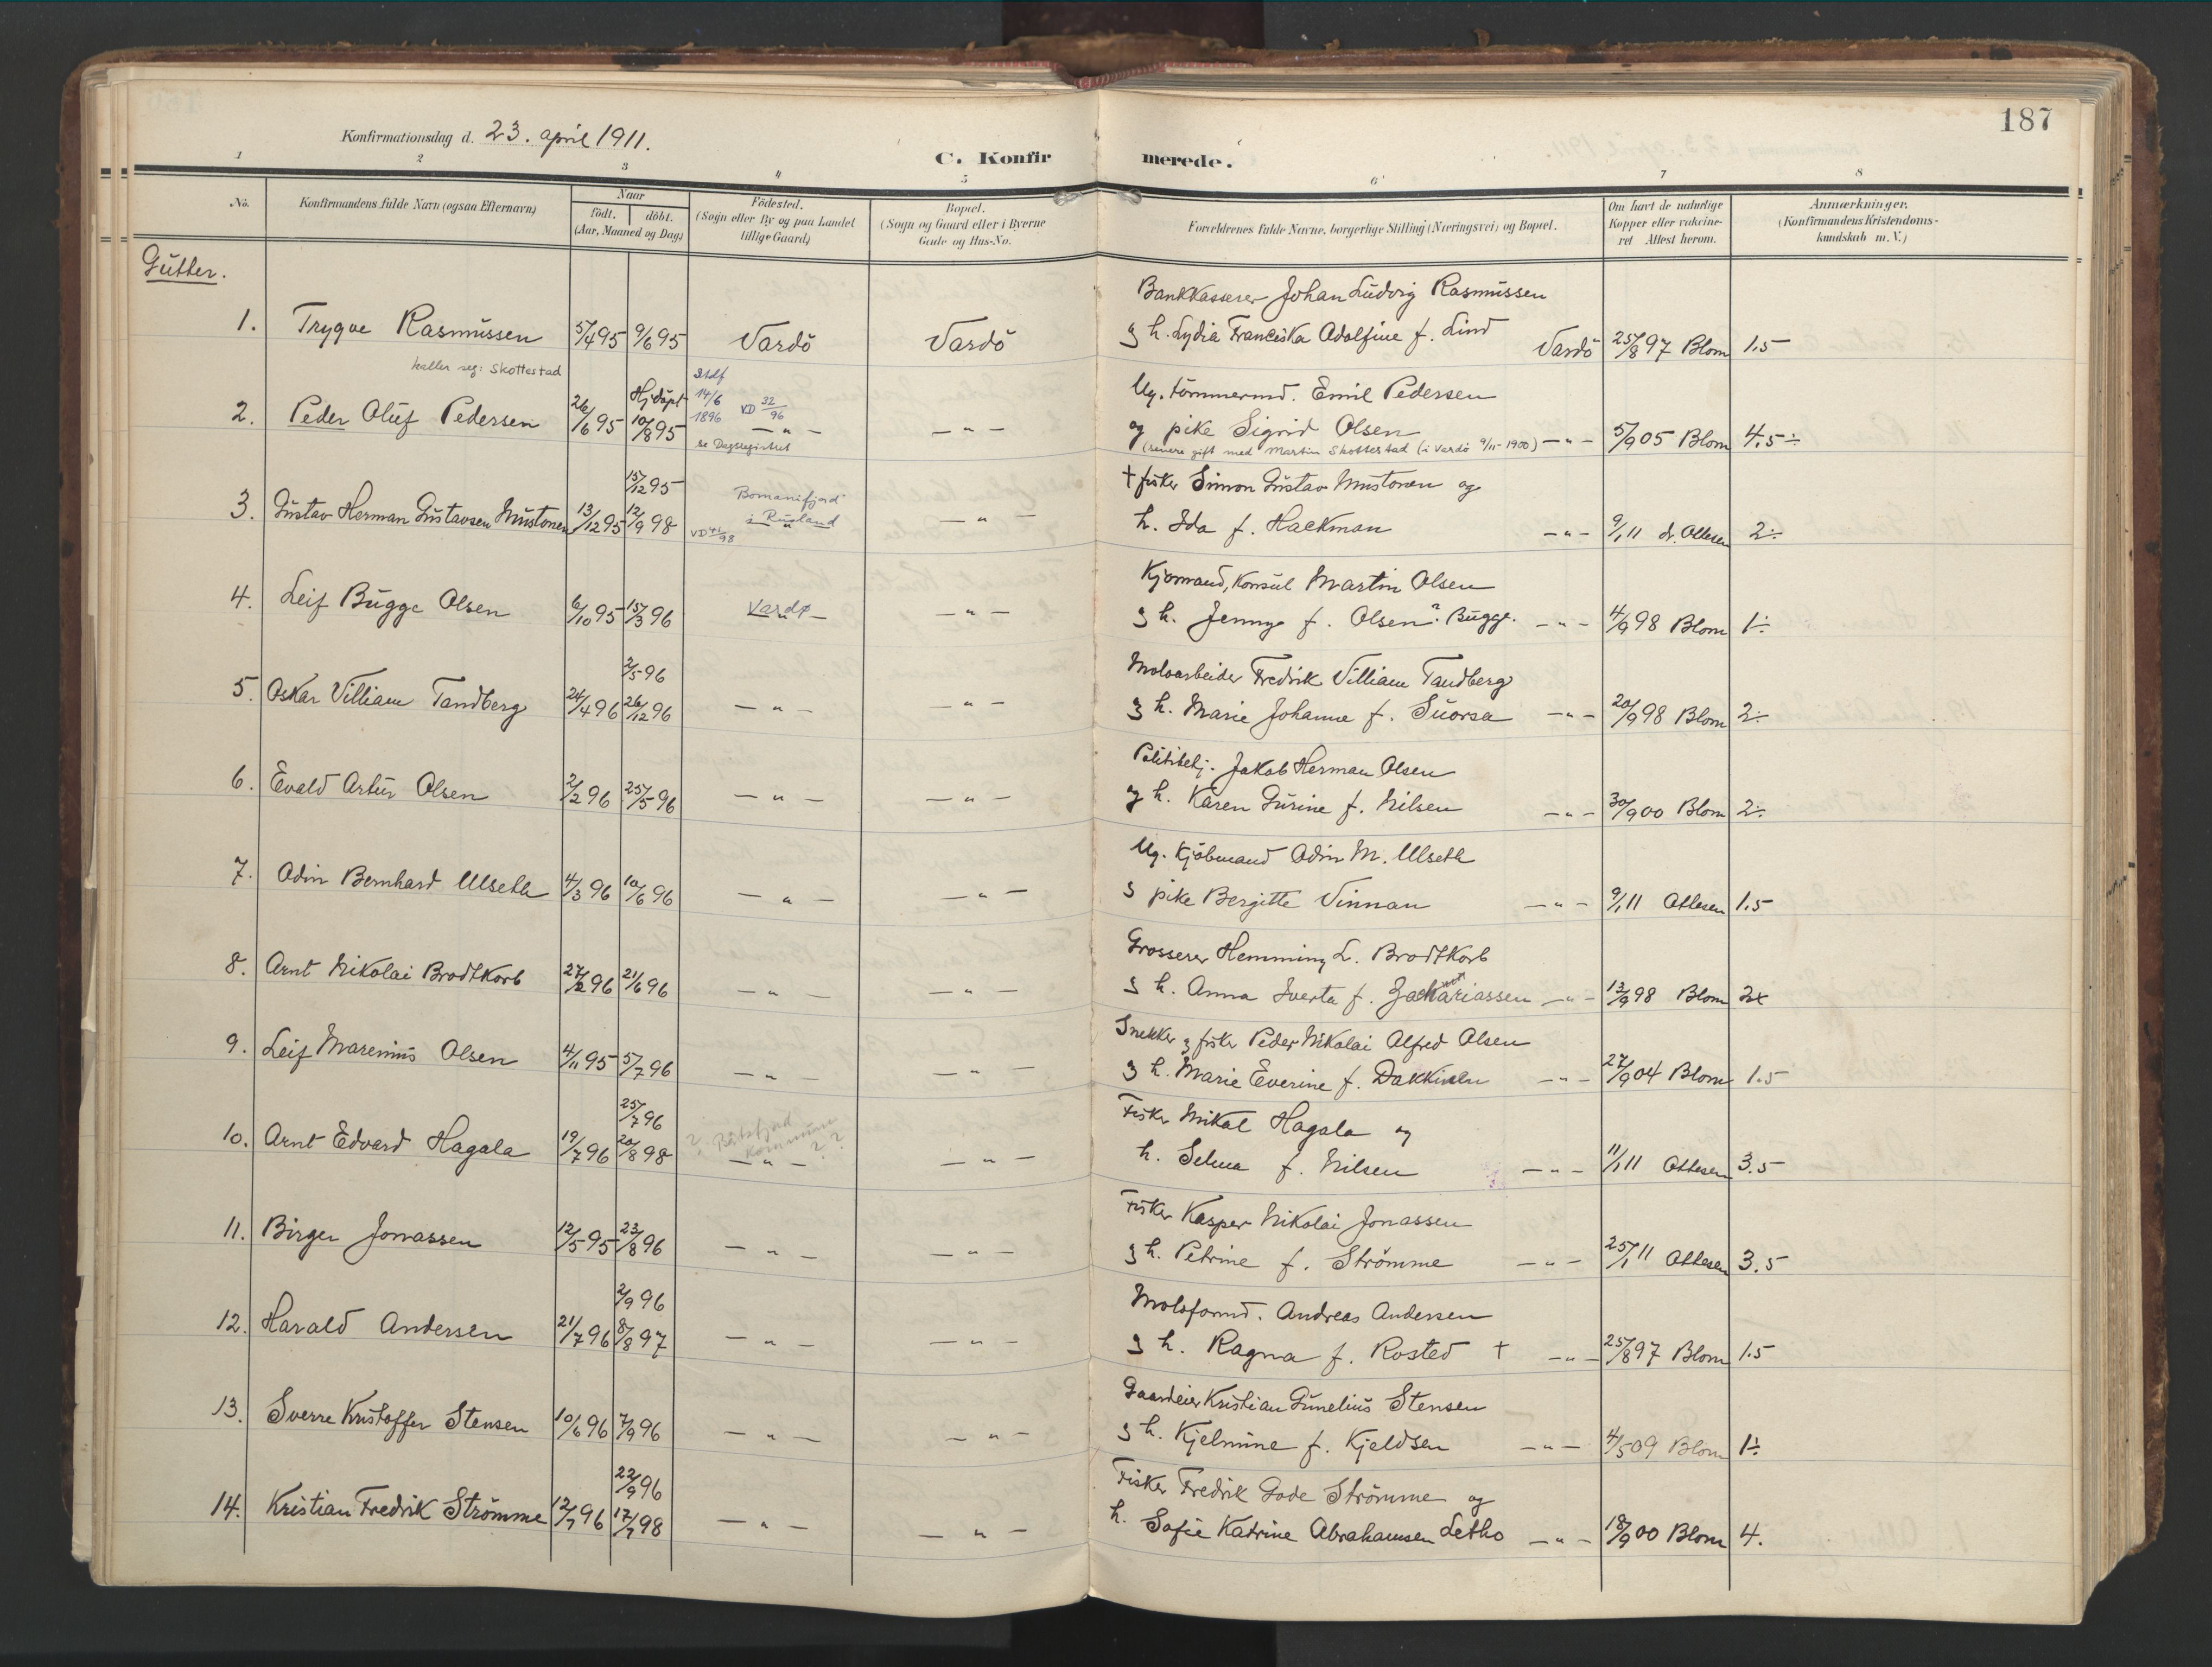 187
Konfirmationsdag d. 23. april 1911.
C. Konfirmerede.
1 2 3 4 5 6 7 8
No. Konfirmandens fulde Navn (ogsaa Efternavn) Naar födt. döbt. (Aar, Maaned og Dag) Födested. (Sogn eller By og paa Landet tillige Gaard) Bopæl. (Sogn og Gaard eller i Byerne Gade og Hus-No. Forældrenes fulde Navne, borgerlige Stilling (Næringsvei) og Bopæl. Om havt de naturlige Kopper eller vakcineret Attest herom. Anmærkninger. (Konfirmandens Kristendomskundskab m. V.)
Gutter.
Bankkasserer Johan Ludvig Rasmussen
1. Trygve Rasmussen 5/4 95 9/6 95 Vardö Vardö g h. Lydia Franciska Adolfine f. Lind Vardö 25/8 97 Blom 1.5
kaller seg: Skottestad
Hjdöpt Stdf 14/6 1896 VD 32/96 Ug. tömmermd. Emil Pedersen
2. Peder Oluf Pedersen 26/6 95 10/8 95 — " — — " — og pike Sigrid Olsen — " — 5/9 05 Blom 4.5 ÷
se Dagsregistret (senere gift med Martin Skottestad (i Vardö 9/11 - 1900)
15/12 95 Bomanifjord † fisker Simon Gustav Mustonen og
3. Gustav Herman Gustavsen Mustonen 13/12 95 12/9 98 VD 41/98 i Rusland — " — h. Ida f. Hackman — " — 9/1 11 dr. Ottesen 2 ÷
Kjömand, Konsul Martin Olsen
4. Leif Bugge Olsen 6/10 95 15/3 96 Vardø — " — g h. Jennye f. Olsen? Bugge. — " — 4/9 98 Blom 1 ÷
2/5 96 Moloarbeider Fredrik Villiam Tandberg
5. Oskar Villiam Tandberg 24/4 96 26/12 96 — " — — " — g h. Marie Johanne f. Suorsa — " — 20/9 98 Blom 2 ÷
Polititbtj. Jakob Herman Olsen
6. Evald Artur Olsen 2/2 96 25/5 96 — " — — " — og h. Karen Gurine f. Nilsen — " — 30/9 00 Blom 2 ÷
Ug. Kjöbmand Odin M. Ulseth
7. Odin Bernhard Ulseth 4/3 96 10/6 96 — " — — " — g pike Bergitte Vinnan — " — 9/1 11 Ottesen 1.5
Grosserer Hemming L. Brodtkorb
8. Arnt Nikolai Brodtkorb 27/2 96 21/6 96 — " — — " — g h. Anna Iverta f. Zachariassen — " — 13/9 98 Blom 2x
Snekker g fisker Peder Nikolai Alfred Olsen
9. Leif Marenius Olsen 4/11 95 5/7 96 — " — — " — g h. Marie Everine f. — " — 27/9 04 Blom 1.5
25/7 96 ? Båtsfjord Kommune ? ? Fisker Mikal Hagala og
10. Arnt Edvard Hagala 19/7 96 20/8 98 — " — — " — h. Selma f. Nilsen — " — 11/1 11 Ottesen 3.5
Fisker Kasper Nikolai Jonassen
11. Birger Jonassen 12/5 95 23/8 96 — " — — " — g h. Petrine f. Strömme — " — 25/1 11 Ottesen 3.5
2/9 96 Moloformd. Andreas Andersen
12. Harald Andersen 21/7 96 8/8 97 — " — — " — g h. Ragna f. Rosted † — " — 25/8 97 Blom 1.5
Gaardeier Kristian Gunelius Stensen
13. Sverre Kristoffer Stensen 10/6 96 7/9 96 — " — — " — g h. Kjelmine f. Kjeldsen — " — 4/5 09 Blom 1 ÷
22/9 96 Fisker Fredrik Gode Strömme og
14. Kristian Fredrik Strömme 12/7 96 17/7 98 — " — — " — h. Sofie Katrine Abrahamsen Letho — " — 18/9 00 Blom 4.